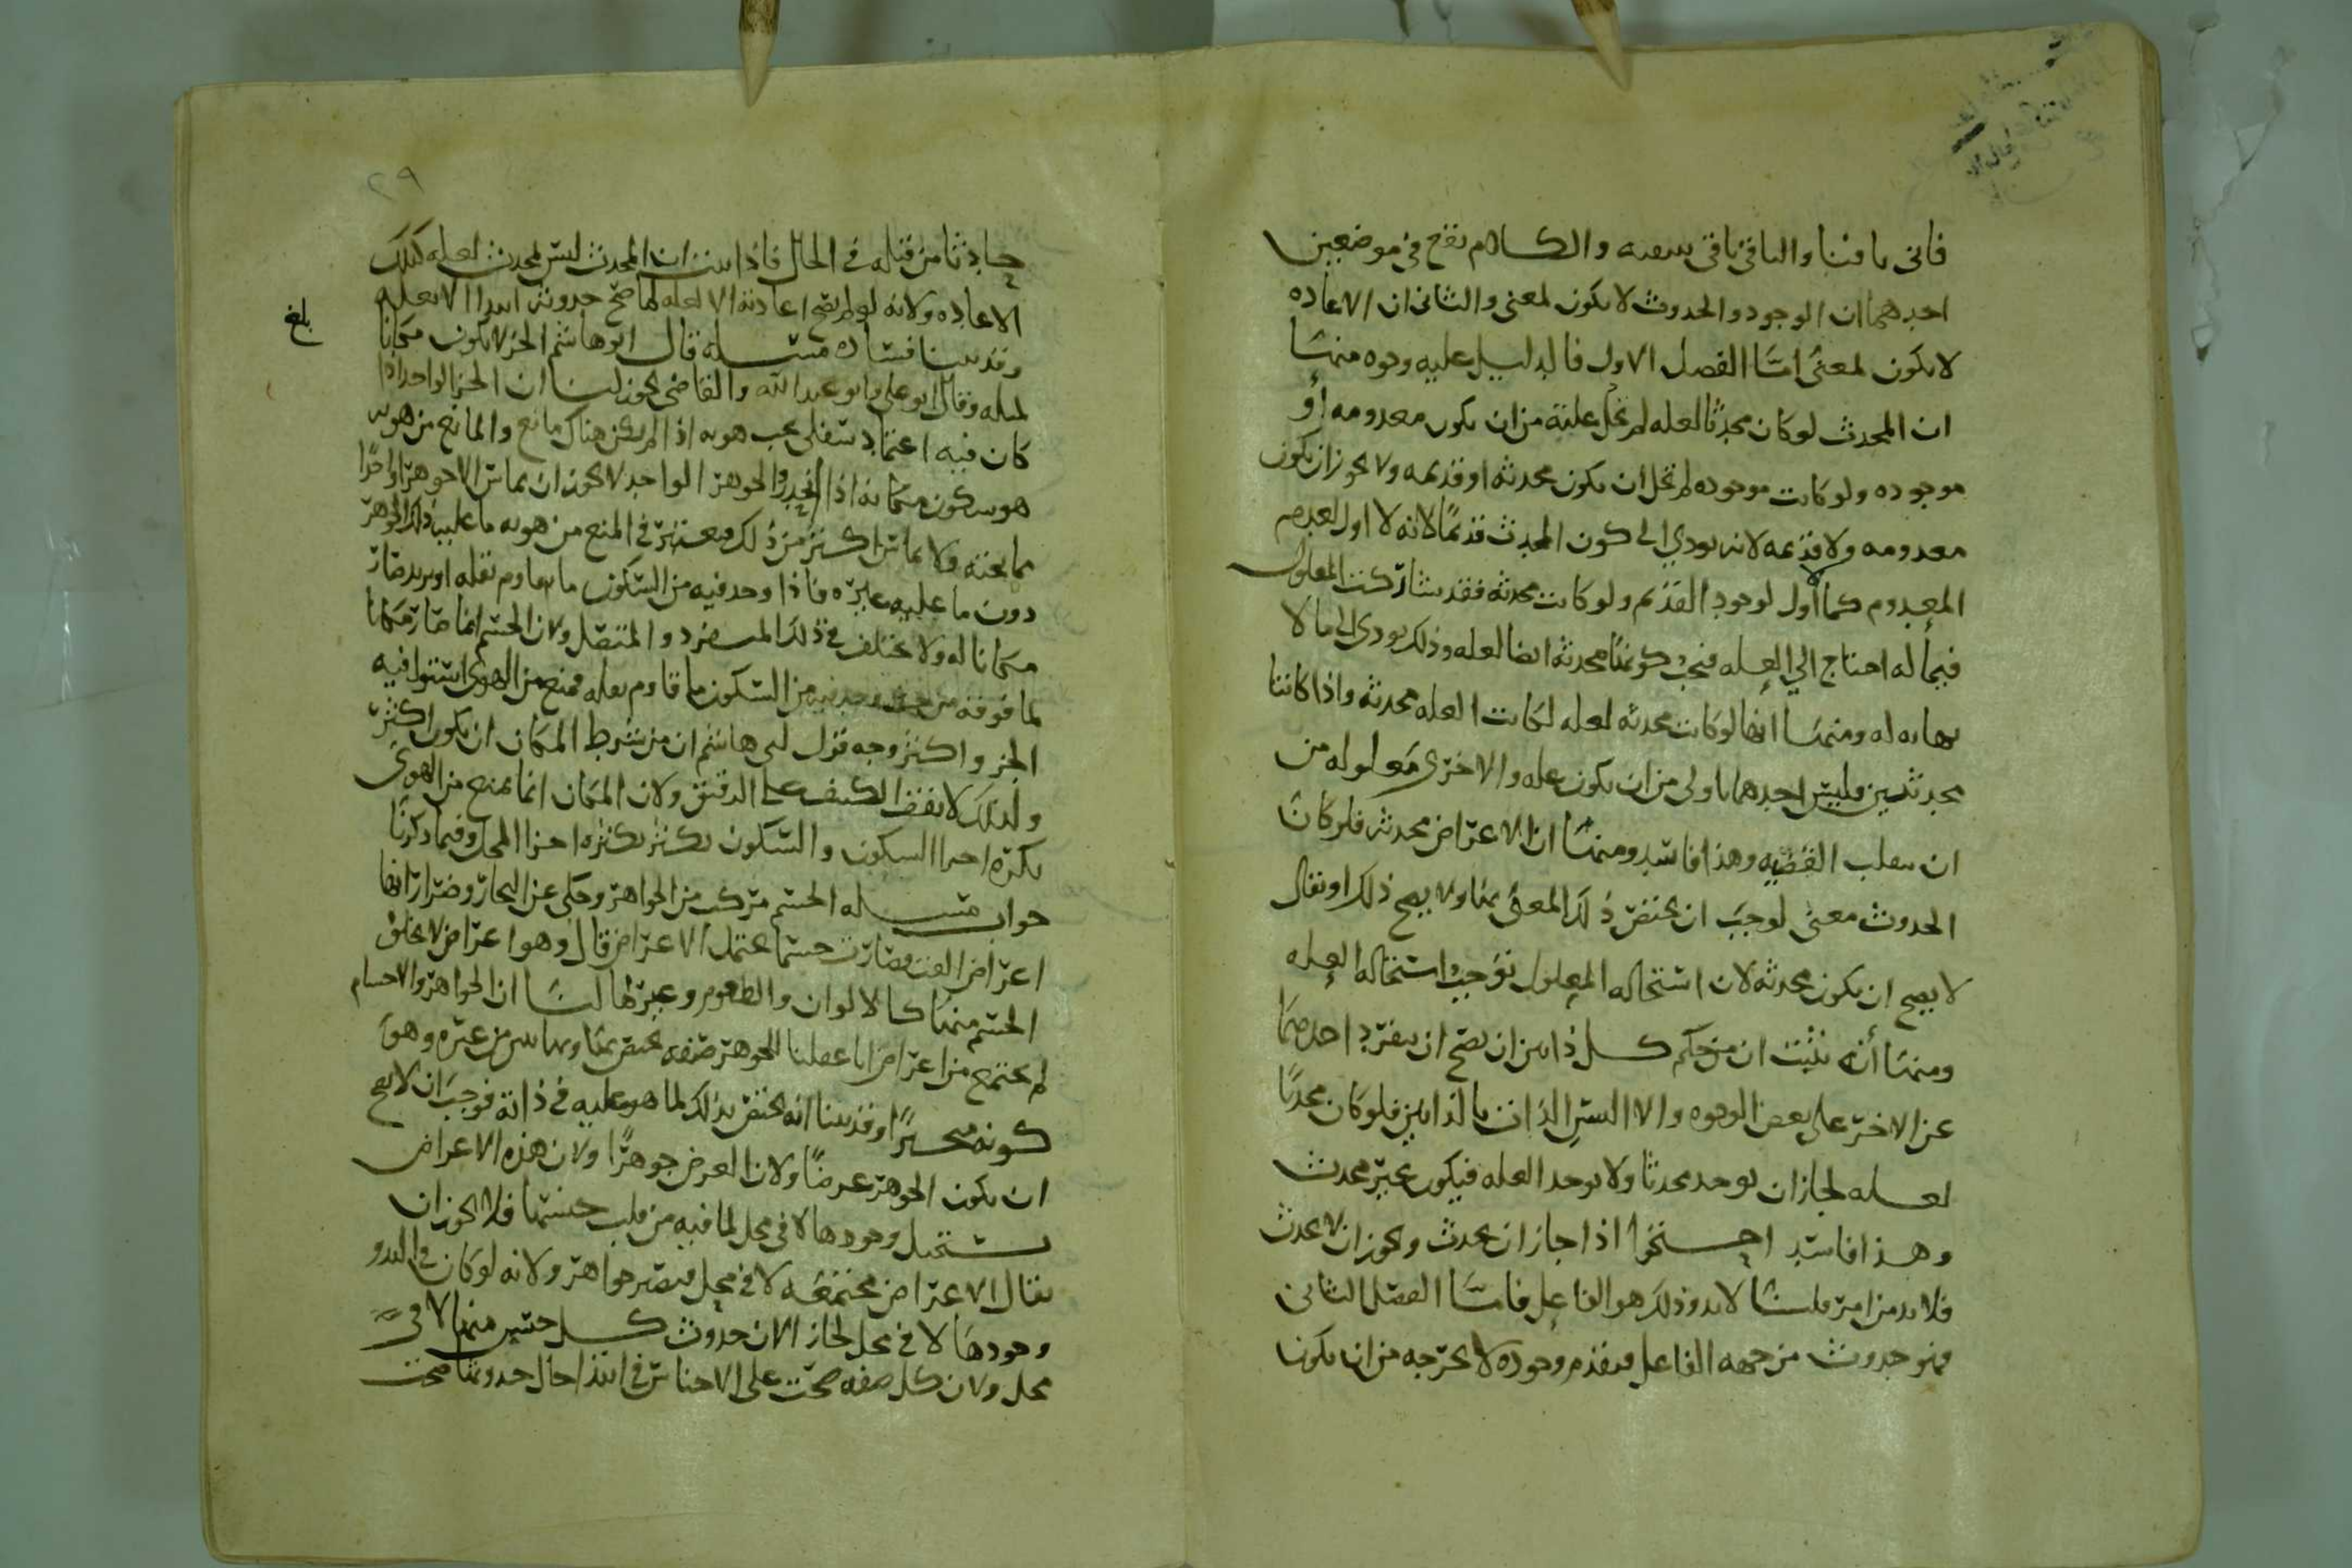 فانى بافنا والباقي باقي ببقيه والكلام يقع في موضعين
احدهما ان الوجود والحدوث لا يكون لمعنى والثاني ان الاعاده
لا يكون لمعنى امّا الفصل الاول فالدليل عليه وجوه منها
ان المحدث لو كان محدثا لعله لم تخل علته من ان يكون معدومه أو
موجوده ولو كانت موجوده لم تخل ان يكون محدثه او قديمه ولا يجوز ان يكون
معدومه ولا قديمه لانه يودي الى كون المحدث قديمًا لانه لا اول لعدم
المعدوم كما لا أول لوجود القديم ولو كانت محدثه فقد شاركت المعلول
فيما له احتاج الي العله فيجب كونها محدثه ايضا لعله وذلك يودي الى ما لا
نهايه له ومنها انها لو كانت محدثه لعله لكانت العله محدثه واذا كانتا
محدثتين فليس احدهما باولى من ان يكون عله والاخرى معلوله من
ان ينقلب القضيه وهذا فاسد ومنها ان الاعراض محدثه فلو كان
الحدوث معنى لوجب ان يختص ذلك المعنى بها ولا يصح ذلك او يقال
لا يصح ان يكون محدثه لان استحاله المعلول توجب استحاله العله
ومنها أنّه يثبت ان من حكم كل ذاتين ان يصح ان ينفرد احدهما
عن الاخر على بعض الوجوه والا التبس الذاتان بالذاتين فلو كان محدثا
لعله لجاز ان يوجد محدثا ولا يوجد العله فيكون غير محدث
وهذا فاسد احتجوا اذا جاز ان يحدث ويجوز ان لا يحدث
فلا بد من امر قلنا لا بد وذلك هو الفاعل فامّا الفصل الثاني
فهو حدوث من جهه الفاعل فتقدم وجوده لا يخرجه من ان يكون
٢٩
حادثا من قبله في الحال فاذا ثبت ان المحدث ليس لمحدث لعله كذلك
الاعاده ولانه لو لم يصح اعادته الا لعله لما صح حدوثه ابتدا الا لعله
بلغ
وقد بينا فساده مسله قال ابو هاشم الجزء لا يكون مكانا
لمثله وقال ابو علي وابو عبد الله والقاضي يجوز لنا ان الجزء الواحد اذا
كان فيه اعتماد سفلى يجب هويه اذا لم يكن هناك مانع والمانع من هويه
هو سكون مكانه اذا والجوهر الواحد لا يجوز ان يماس الا جوهرا واحدًا
مما تحته ولا يماس اكثر من ذلك فيعتبر في المنع من هويه ما عليه ذلك الجوهر
دون ما عليه غيره فاذا وجد فيه من السكون ما يقاوم ثقله او يزيد صار
مكانا له ولا يختلف في ذلك المنفرد والمتصل ولان الجسم انما صار مكانا
لما فوقه من حيث وجد فيه من السكون ما قاوم ثقله فمنع من الهوى استوا فيه
الجزء واكثر وجه قول ابي هاشم ان من شرط المكان ان يكون اكثر
ولذلك لا يقف الكثيف على الدقيق ولان المكان انما يمنع من الهوى
بكثره اجزا السكون والسكون يكثر بكثره اجزا المحل وفيما ذكرنا
جواب مسله الجسم مركب من الجواهر وحكى عن النجار وضرار انها
اعراض الفت فصارت جسما يحتمل الاعراض قال وهو اعراض لا يخلو
الجسم منها كالالوان والطعوم وغيرها لنا ان الجواهر والاجسام
لم يجتمع من اعراض انا عقلنا للجوهر صفه يختص بها وبها يبين من غيره وهو
كونه متحيزًا وقد بينا انه يختص بذلك لما هو عليه في ذاته فوجب ان لا يصح
ان يكون الجوهر عرضًا ولان العرض جوهرًا ولان هذه الاعراض
يستحيل وجودها لا في محل لما فيه من قلب جنسها فلا يجوز ان
يقال الاعراض مجتمعه لا في محل فيصير جواهر ولانه لو كان في البدو
وجودها لا في محل لجاز الان حدوث كل جنس منها لا في
محل ولان كل صفه صحت على الاجناس في ابتدا حال حدوثها صحت